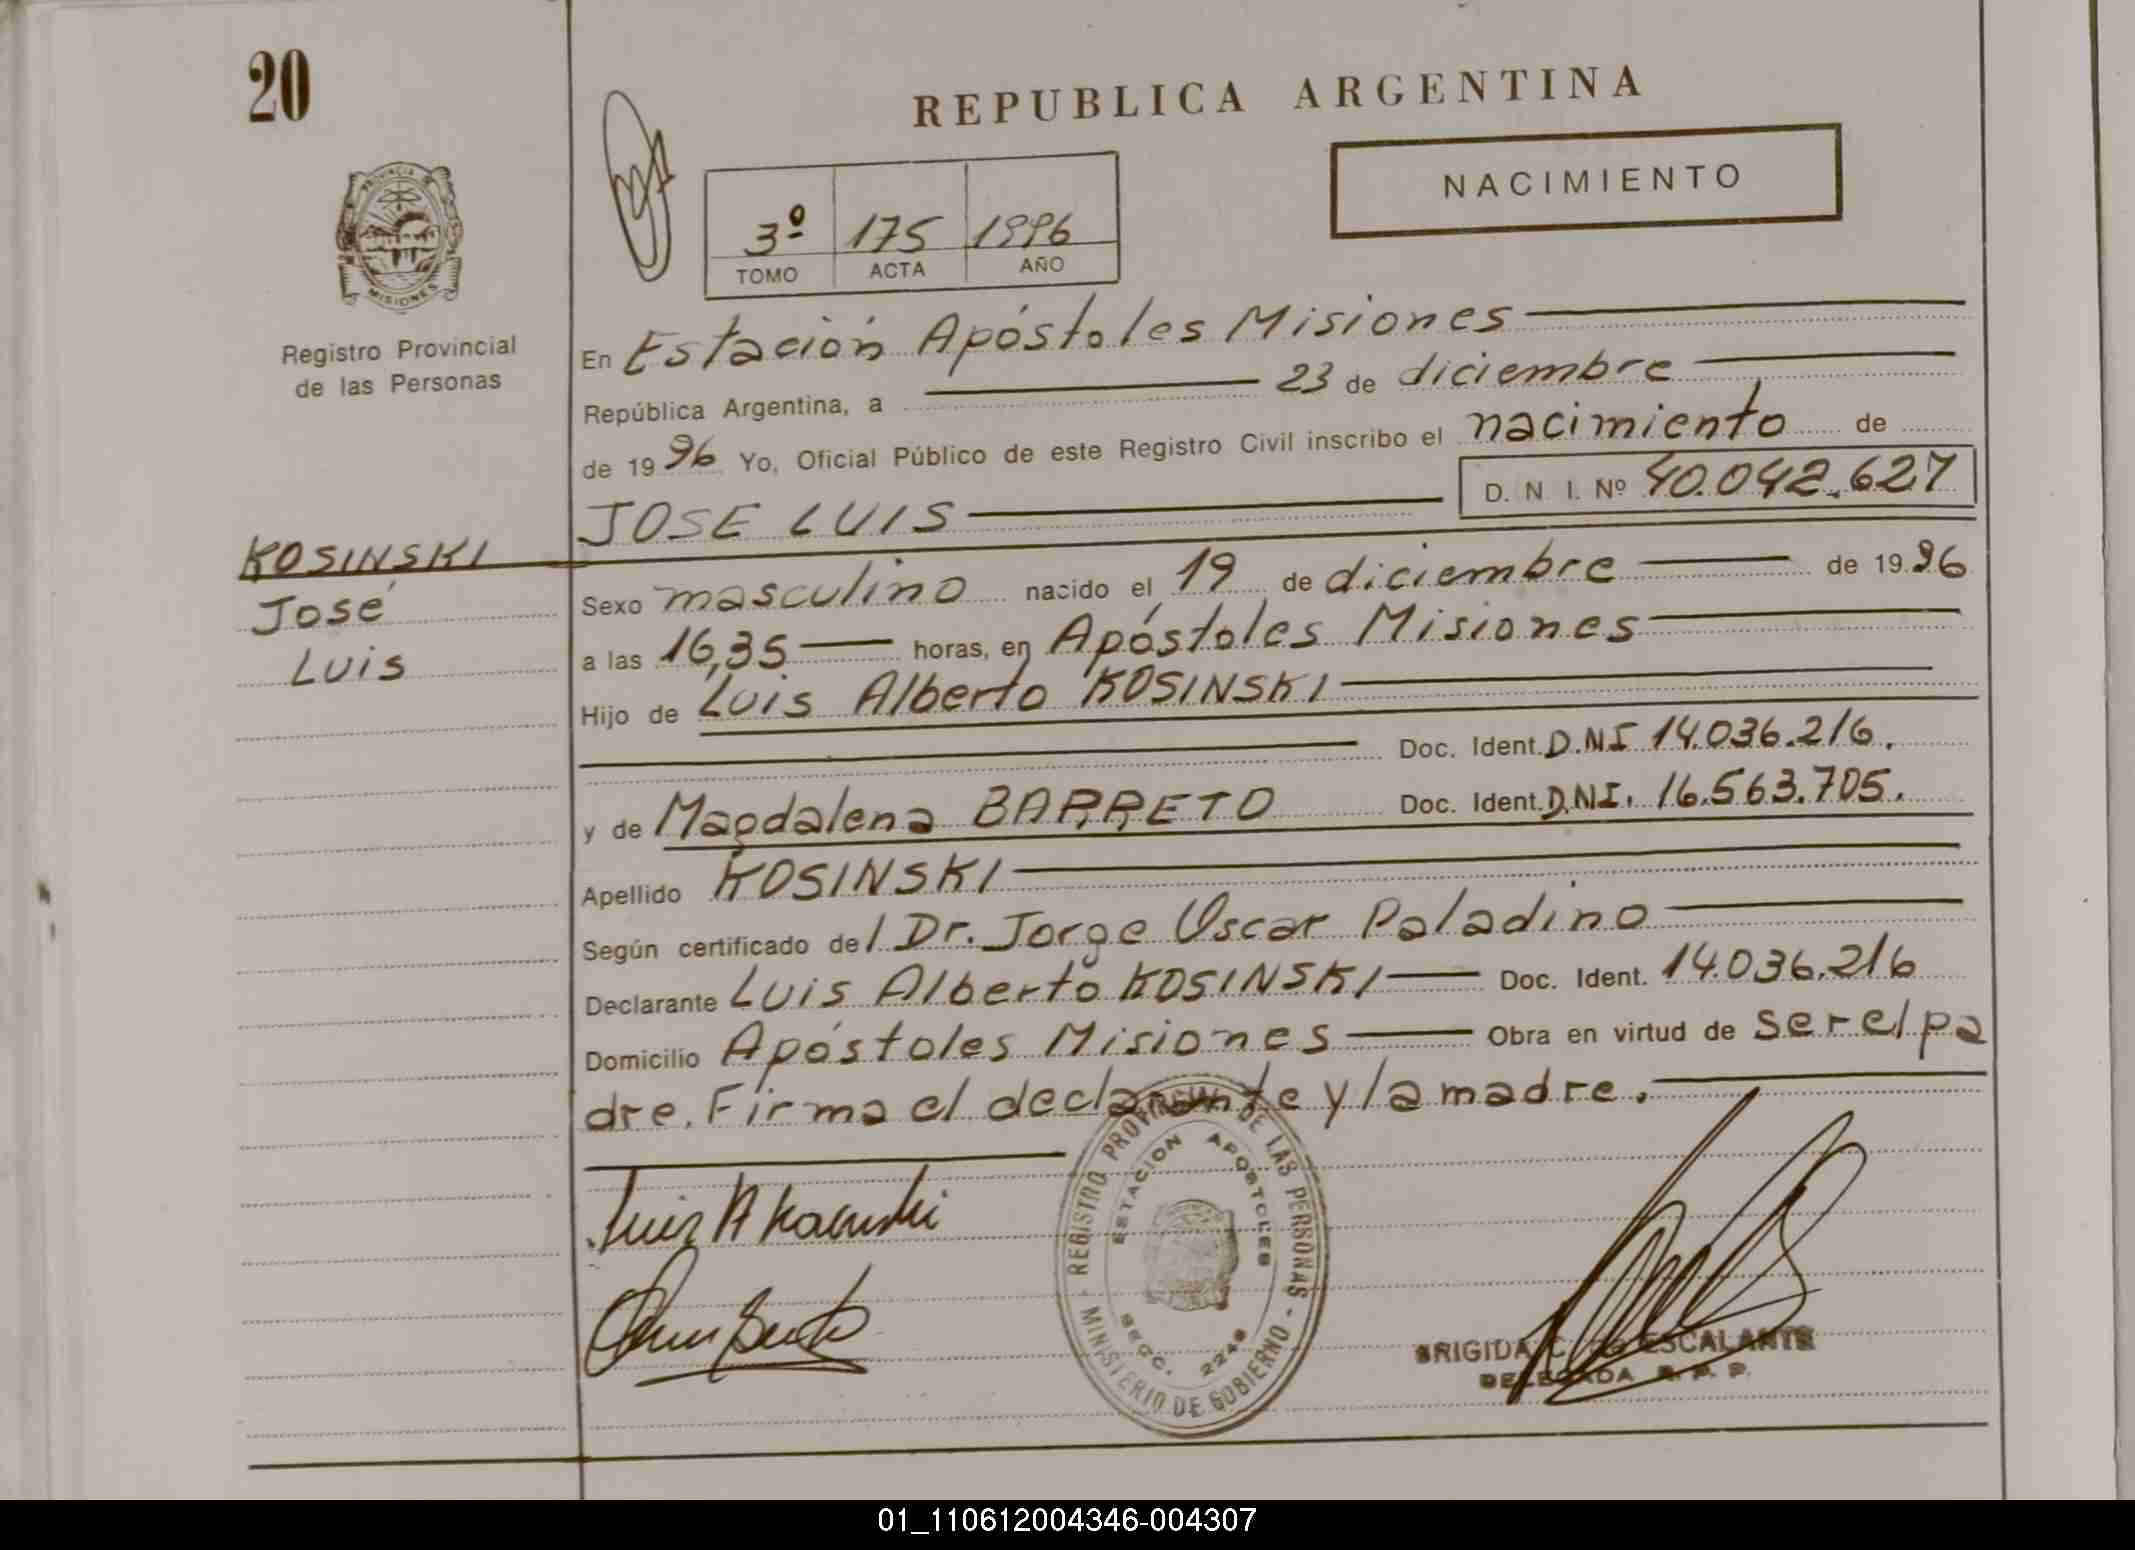 20
REPUBLICA ARGENTINA
NACIMIENTO
3º 175 1996
TOMO ACTA AÑO
PROVINCIA DE
MISIONES
Registro Provincial
de las Personas
KOSINSKI
José
Luis
En Estación Apóstoles Misiones
República Argentina, a 23 de diciembre
de 1996 Yo, Oficial Público de este Registro Civil inscribo el nacimiento de
JOSE LUIS D. N I. Nº 40.042.627
Sexo masculino nacido el 19 de diciembre de 1996
a las 16,35 horas, en Apóstoles Misiones
Hijo de Luis Alberto KOSINSKI
Doc. Ident. D.NI 14.036.216.
y de Magdalena BARRETO Doc. Ident. D.NI. 16.563.705.
Apellido KOSINSKI
Según certificado del Dr. Jorge Oscar Paladino
Declarante Luis Alberto KOSINSKI Doc. Ident. 14.036.216
Domicilio Apóstoles Misiones Obra en virtud de ser el pa
dre. Firma el declarante y la madre.
Luis A Kosinski
REGISTRO PROVINCIAL DE LAS PERSONAS - MINISTERIO DE GOBIERNO -
ESTACION APOSTOLES
SECC. 2248
BRIGIDA C. DE ESCALANTE
DELEGADA R. P. P.
01_110612004346-004307